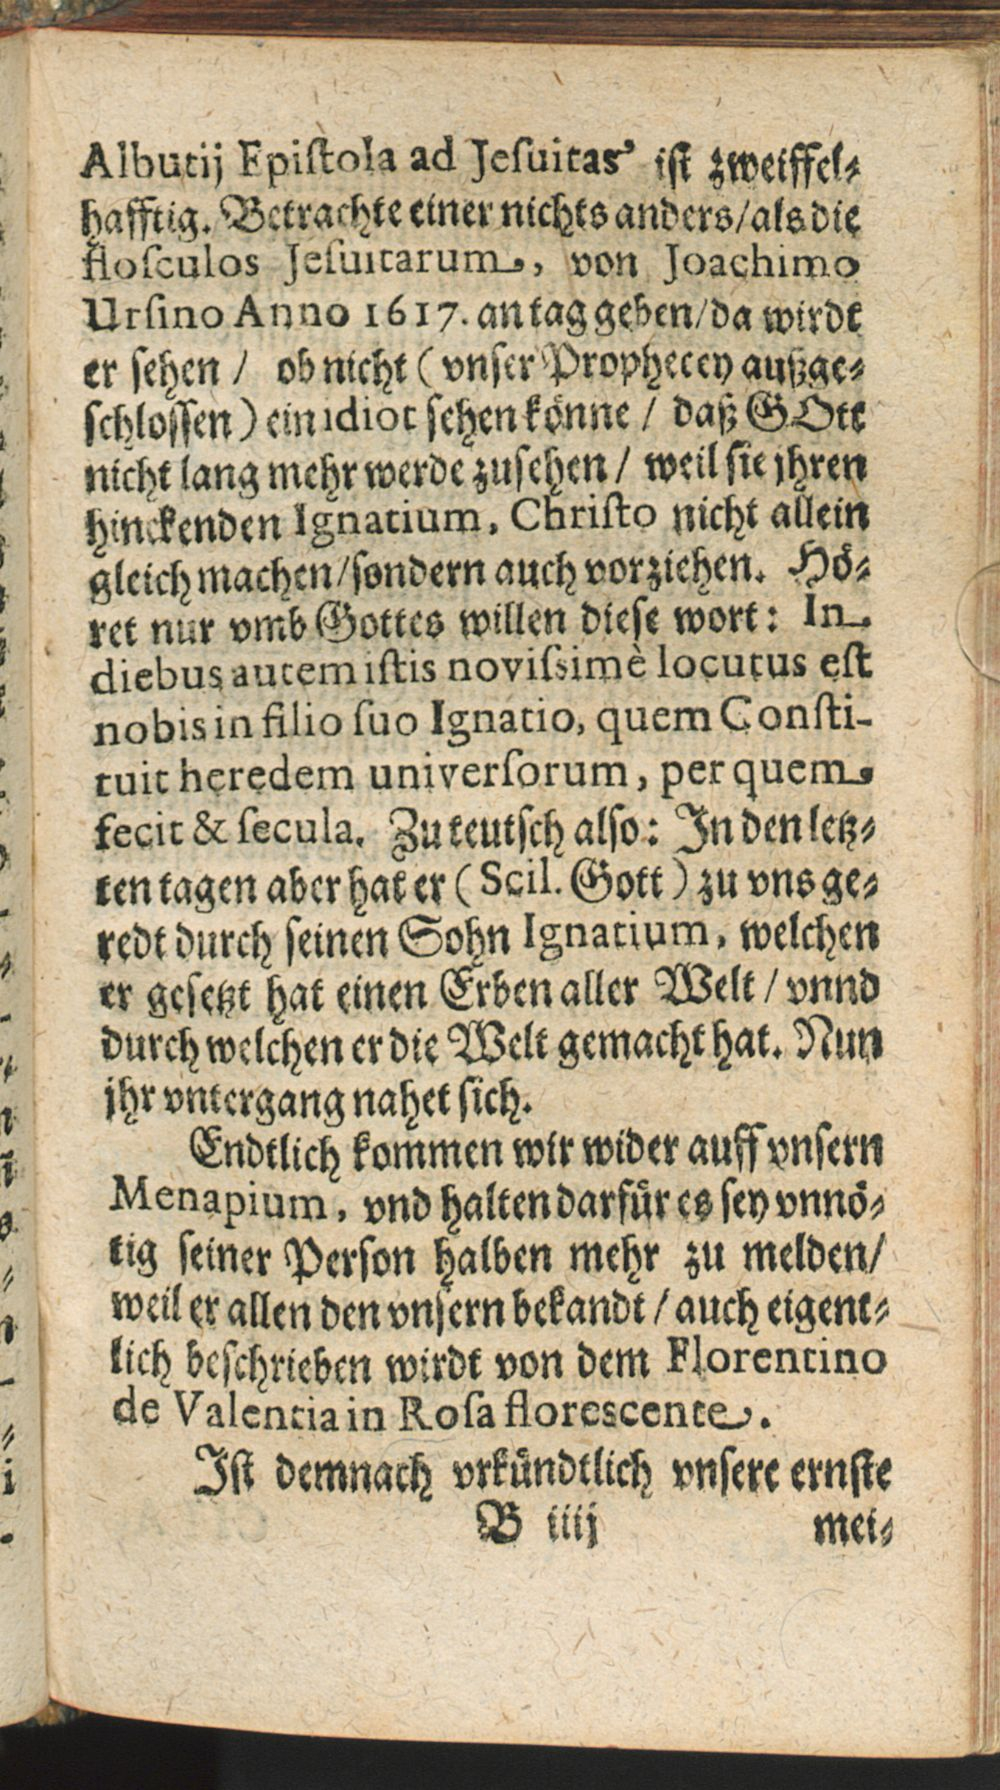 Albutij Epiſtola ad Jeſuitas’ iſt zweiffel⸗
hafftig. Betrachte einer nichts anders/als die
floſculos Jeſuitarum, von Joachimo
Urſino Anno 1617. an tag geben/da wirdt
er ſehen / ob nicht (vnſer Prophecey außge⸗
ſchloſſen) ein idiot ſehen könne / daß GOtt
nicht lang mehr werde zuſehen / weil ſie jhren
hinckenden Ignatium, Chriſto nicht allein
gleich machen/ſondern auch vorziehen. Hö⸗
ret nur vmb Gottes willen dieſe wort: In
diebus autem iſtis noviſsimè locutus eſt
nobis in filio ſuo Ignatio, quem Conſti-
tuit heredem univerſorum, per quem
fecit & ſecula. Zu teutſch alſo: In den letz⸗
ten tagen aber hat er (Scil. Gott) zu vns ge⸗
redt durch ſeinen Sohn Ignatium, welchen
er geſetzt hat einen Erben aller Welt / vnnd
durch welchen er die Welt gemacht hat. Nun
jhr vntergang nahet ſich.
Endtlich kommen wir wider auff vnſern
Menapium, vnd halten darfür es ſey vnnö⸗
tig ſeiner Perſon halben mehr zu melden/
weil er allen den vnſern bekandt / auch eigent⸗
lich beſchrieben wirdt von dem Florentino
de Valentia in Roſa floreſcente.
Iſt demnach vrkündtlich vnſere ernſte
B iiij mei⸗